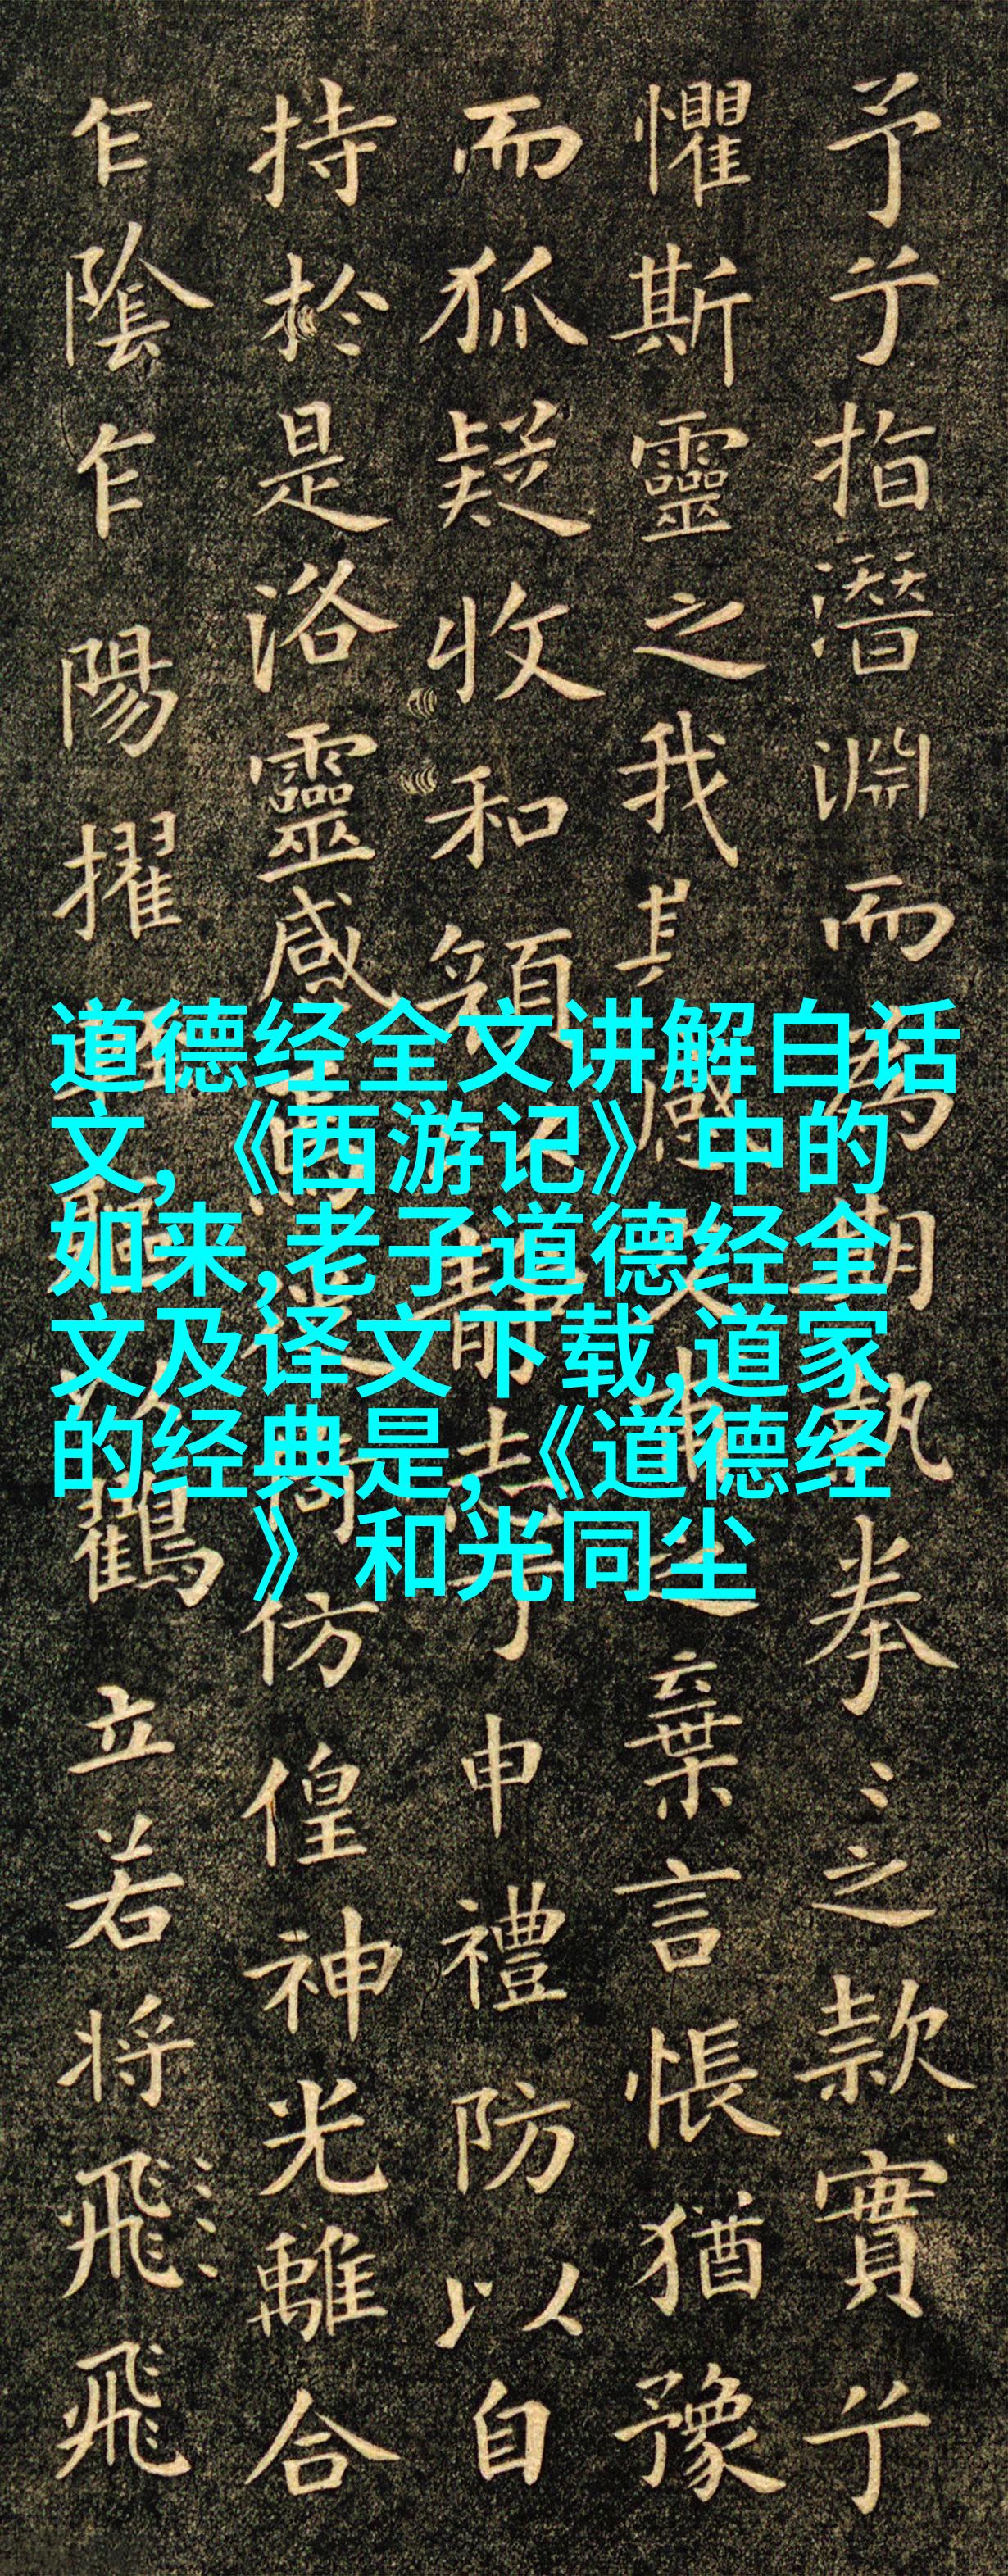 予兮指潛淵而為期執拳〻之款實兮
懼斯靈之我其感交甫之棄言悵猶豫
而狐疑收和顏以靜志兮申禮防以自
持於是洛靈感焉徙倚仿偟神光離合
乍陰乍陽擢輕軀以鶴立若將飛飛
道德经全文讲解白话
文,《西游记》中的
如来,老子道德经全
文及译文下载,道家
的经典是,《道德经
》和光同尘